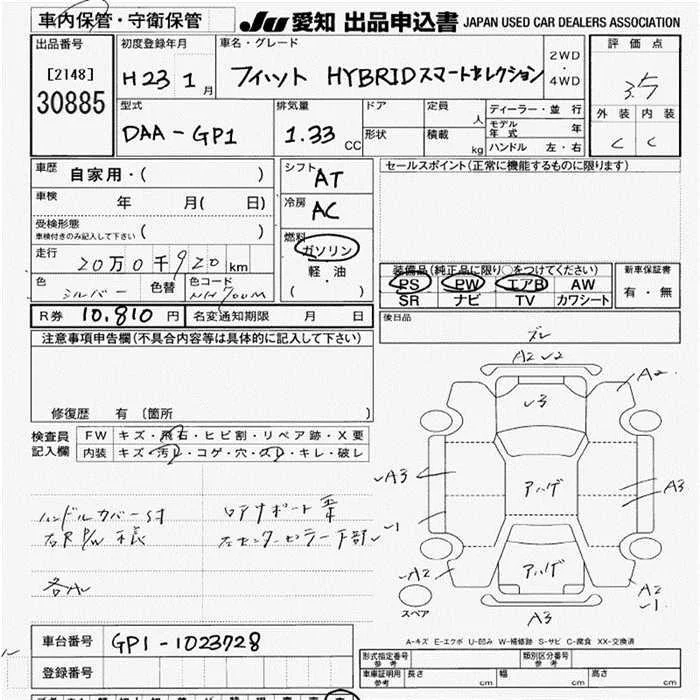 車内保管・守衛保管
JU 愛知 出品申込書 JAPAN USED CAR DEALERS ASSOCIATION
出品番号
[2148]
30885
初度登録年月
H23 1月
車名・グレード
フィット HYBRIDスマートセレクション
2WD
・
4WD
評価点
3.5
外装 内装
C C
型式
DAA-GP1
排気量
1.33 CC
ドア
形状
定員 人
積載 kg
ディーラー・並行
モデル年式 年
ハンドル 左・右
車歴
自家用・( )
車検
年 月( 日)
受検形態
車検付きのみ記入して下さい ( )
走行
20万0千920km
色
シルバー
色替
色コード
NH700M
シフト
AT
冷房
AC
燃料
ガソリン
軽・油
( )
セールスポイント(正常に機能するものに限ります)
装備品(純正品に限り○をつけてください)
PS PW エアB AW
SR ナビ TV カワシート
新車保証書
有・無
R券 10,810円
名変通知期限 月 日
後日品
注意事項申告欄(不具合内容等は具体的に記入して下さい)
修復歴 有 [箇所 ]
検査員
記入欄
FW キズ・飛石・ヒビ割・リペア跡・X要
内装 キズ・汚レ・コゲ・穴・スレ・キレ・破レ
ハンドルカバーS付
右R P/W 不様
ロアサポート
左センターピラー下部
A2 U2
A2
U3
A3
A3
アハゲ
アハゲ
A2
A2
A3
スペア
A-キズ E-エクボ U-凹み W-補修跡 S-サビ C-腐食 XX-交換済
車台番号 GP1-1023728
登録番号
形式指定番号
参考
類別区分番号
参考
車庫証明用
参考
長さ cm 幅 cm 高さ cm